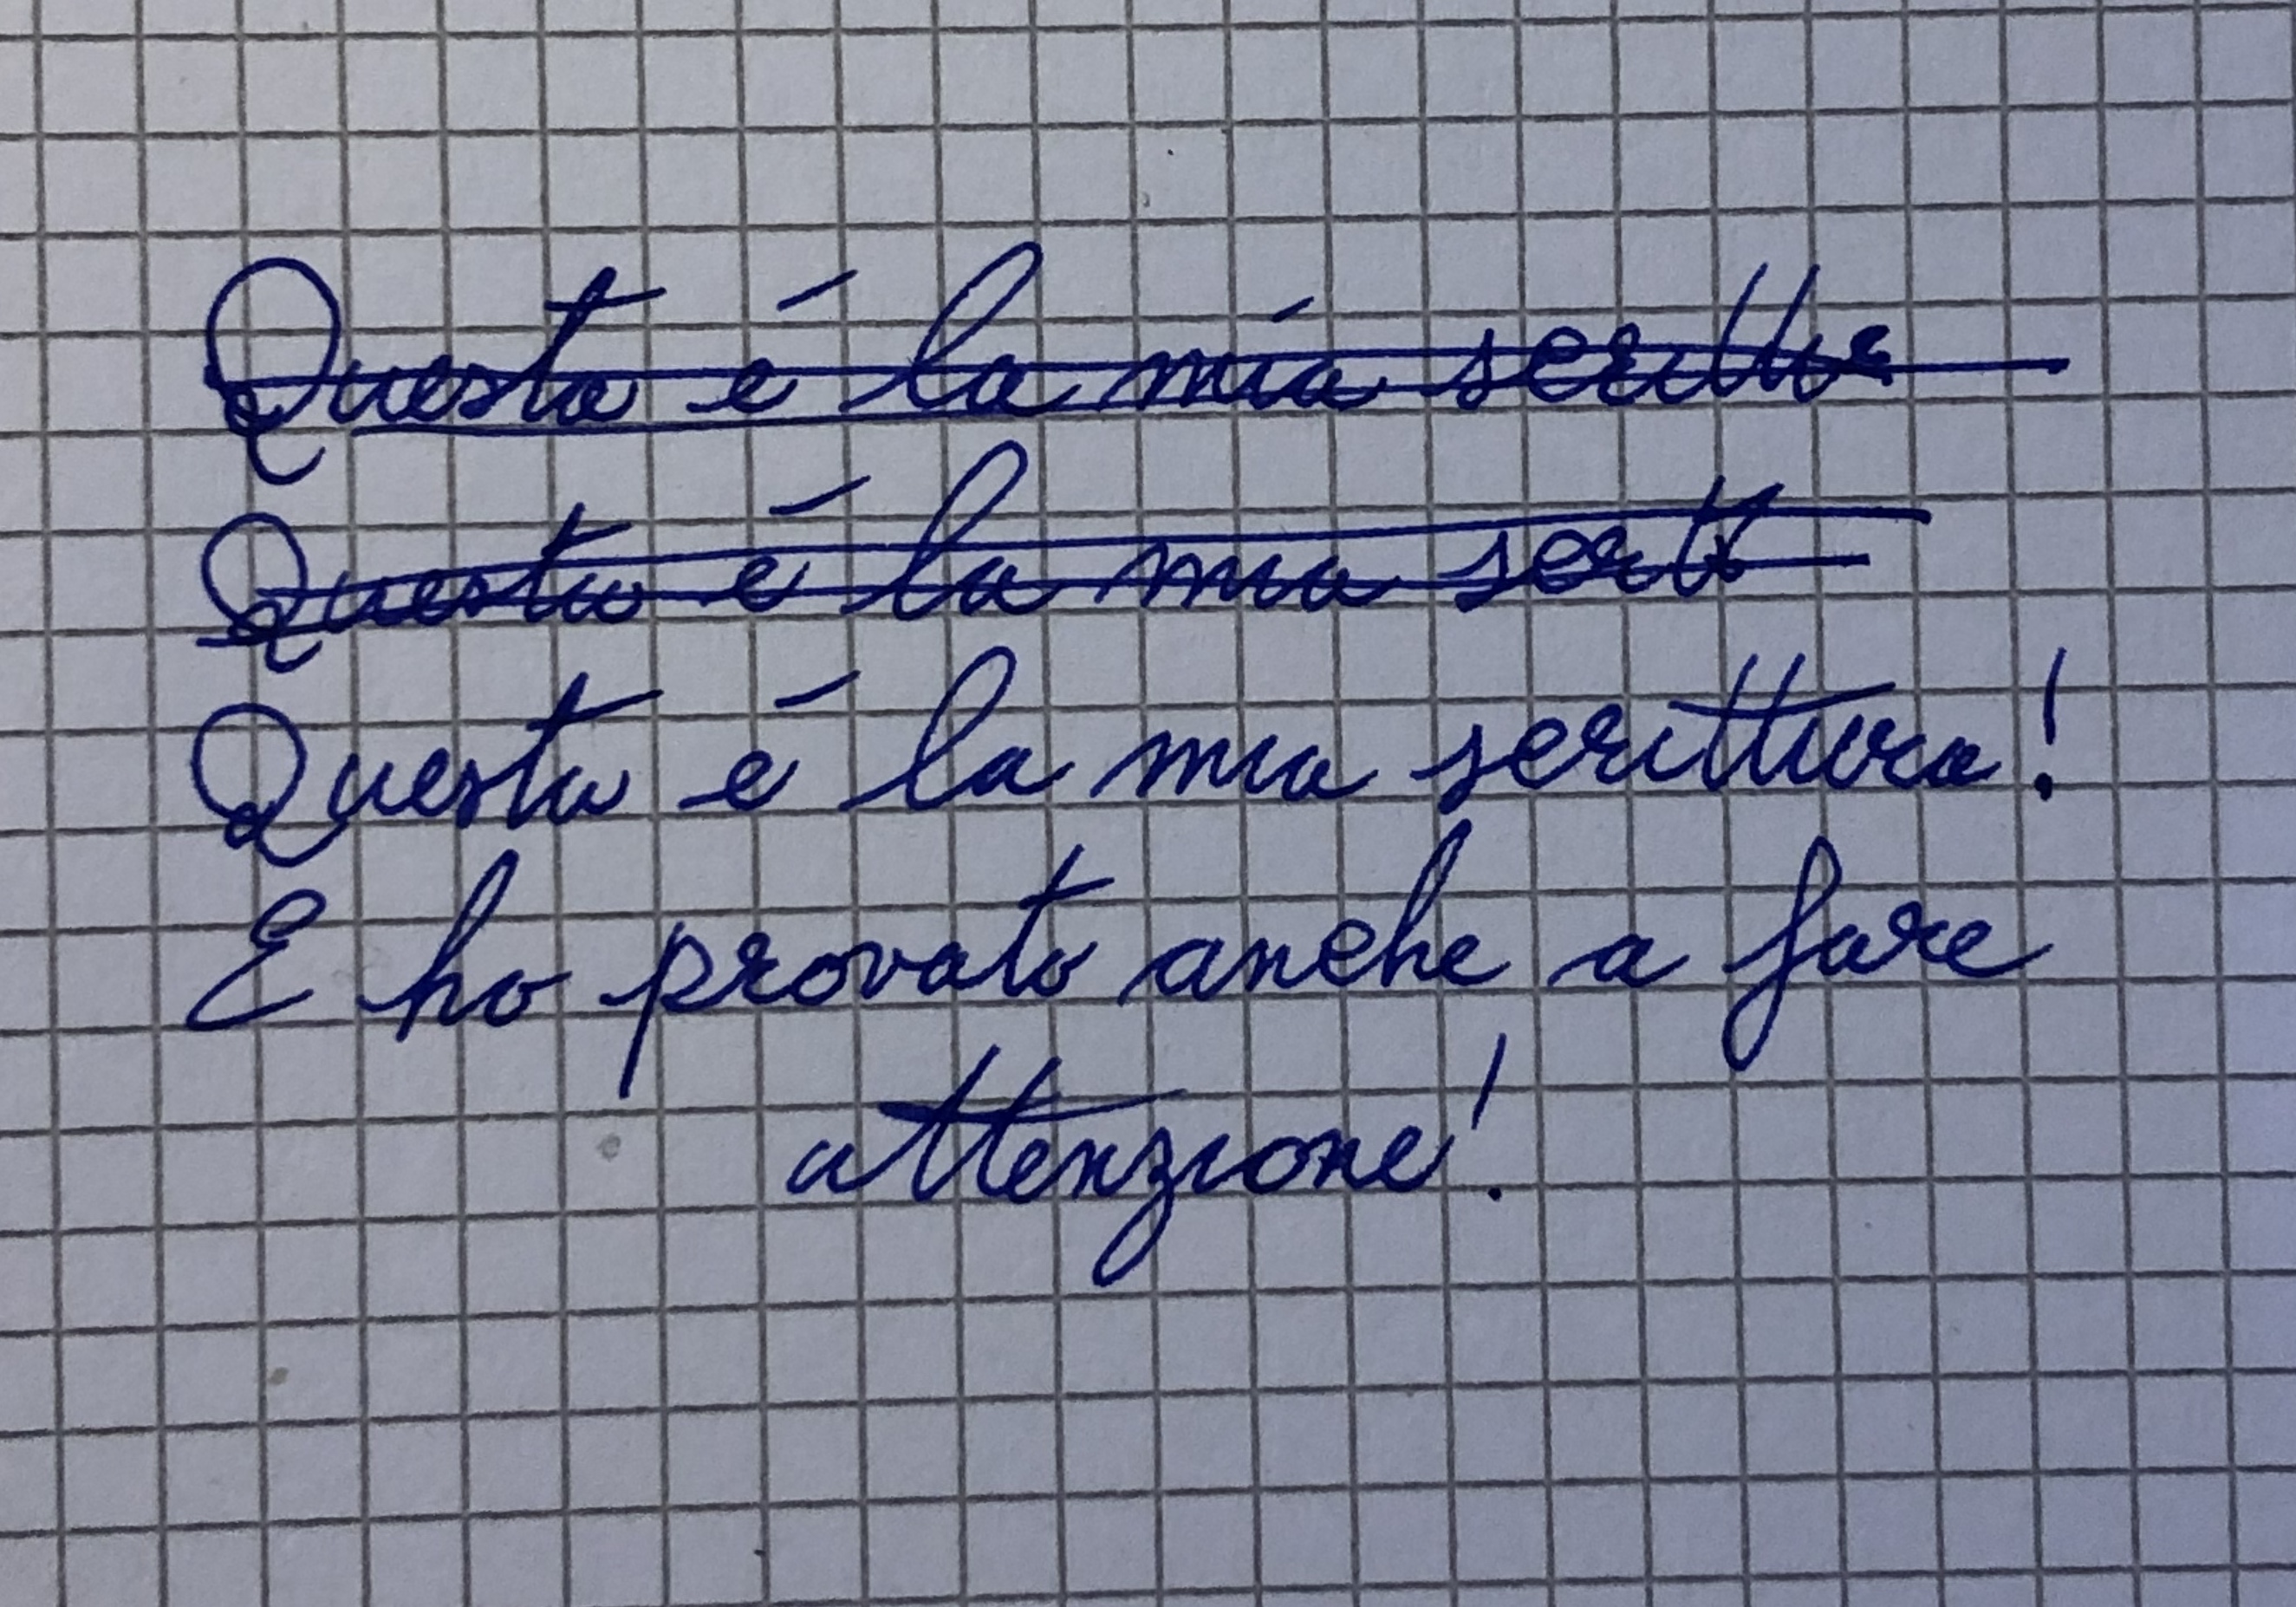 Questa é la mia scrittur
Questa é la mia scritt
Questa é la mia scrittura!
E ho provato anche a fare
attenzione!